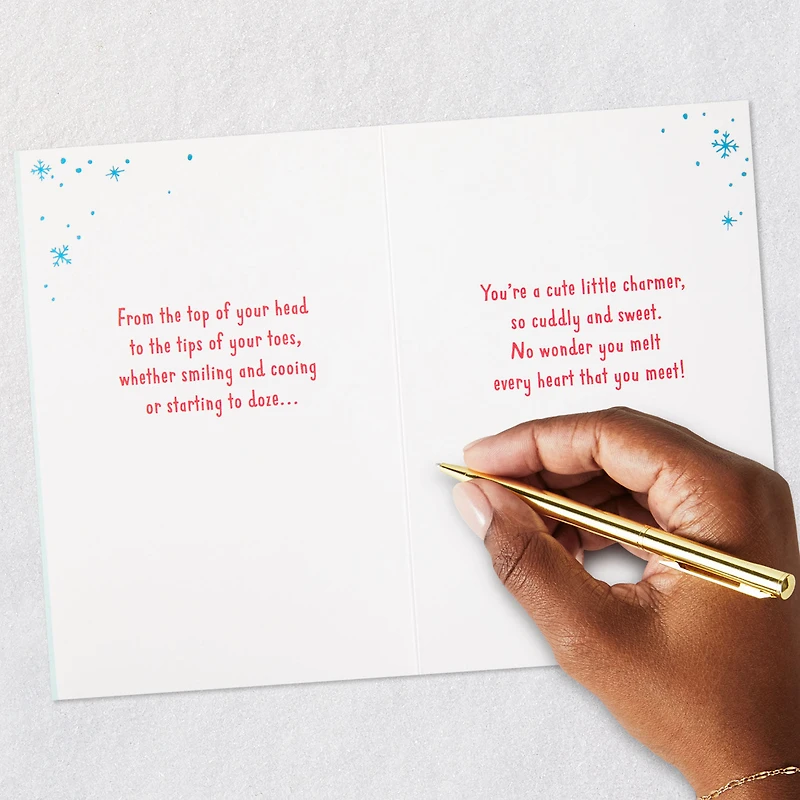 From the top of your head
to the tips of your toes,
whether smiling and cooing
or starting to doze...
You're a cute little charmer,
so cuddly and sweet.
No wonder you melt
every heart that you meet!